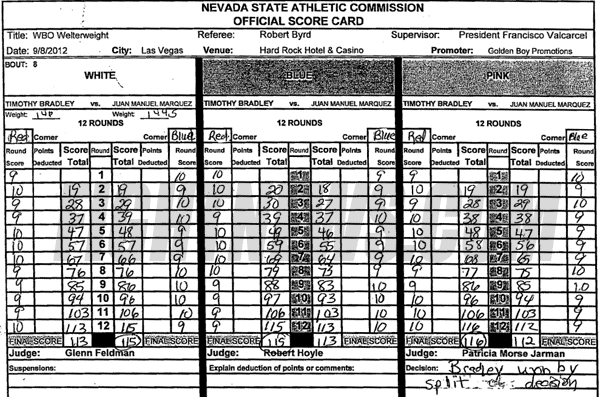 NEVADA STATE ATHLETIC COMMISSION
OFFICIAL SCORE CARD
Title: WBO Welterweight Referee: Robert Byrd Supervisor: President Francisco Valcarcel
Date: 9/8/2012 City: Las Vegas Venue: Hard Rock Hotel & Casino Promoter: Golden Boy Promotions
BOUT: 8
WHITE BLUE PINK
TIMOTHY BRADLEY vs. JUAN MANUEL MARQUEZ TIMOTHY BRADLEY vs. JUAN MANUEL MARQUEZ TIMOTHY BRADLEY vs. JUAN MANUEL MARQUEZ
Weight: Weight:
12 ROUNDS 12 ROUNDS 12 ROUNDS
Red Corner Corner Blue Red Corner Corner Blue Red Corner Corner Blue
Round Points Score Round Score Points Round Round Points Score Round Score Points Round Round Points Score Round Score Points Round
Score Deducted Total Total Deducted Score Score Deducted Total Total Deducted Score Score Deducted Total Total Deducted Score
9 1 10 10 1 9 9 1 10
10 19 2 19 9 10 20 2 18 9 10 19 2 19 9
9 28 3 29 10 10 30 3 27 9 9 28 3 29 10
9 37 4 39 10 9 39 4 37 10 10 38 4 38 9
10 47 5 48 9 10 49 5 46 9 10 48 5 47 9
10 57 6 57 9 10 59 6 55 9 10 58 6 56 9
10 67 7 66 9 10 69 7 64 9 10 68 7 65 9
9 76 8 76 10 10 79 8 73 9 9 8 75 10
9 85 9 86 10 9 88 9 83 10 9 86 9 85 10
9 94 10 96 10 9 97 10 93 10 10 96 10 94 9
9 103 11 106 10 9 106 11 103 10 10 106 11 103 9
10 113 12 115 9 9 115 12 113 10 10 116 12 112 9
FINAL SCORE 113 115 FINAL SCORE FINAL SCORE 115 113 FINAL SCORE FINAL SCORE 116 112 FINAL SCORE
Judge: Glenn Feldman Judge: Robert Hoyle Judge: Patricia Morse Jarman
Suspensions: Explain deduction of points or comments: Decision: Bradley won by
split decision